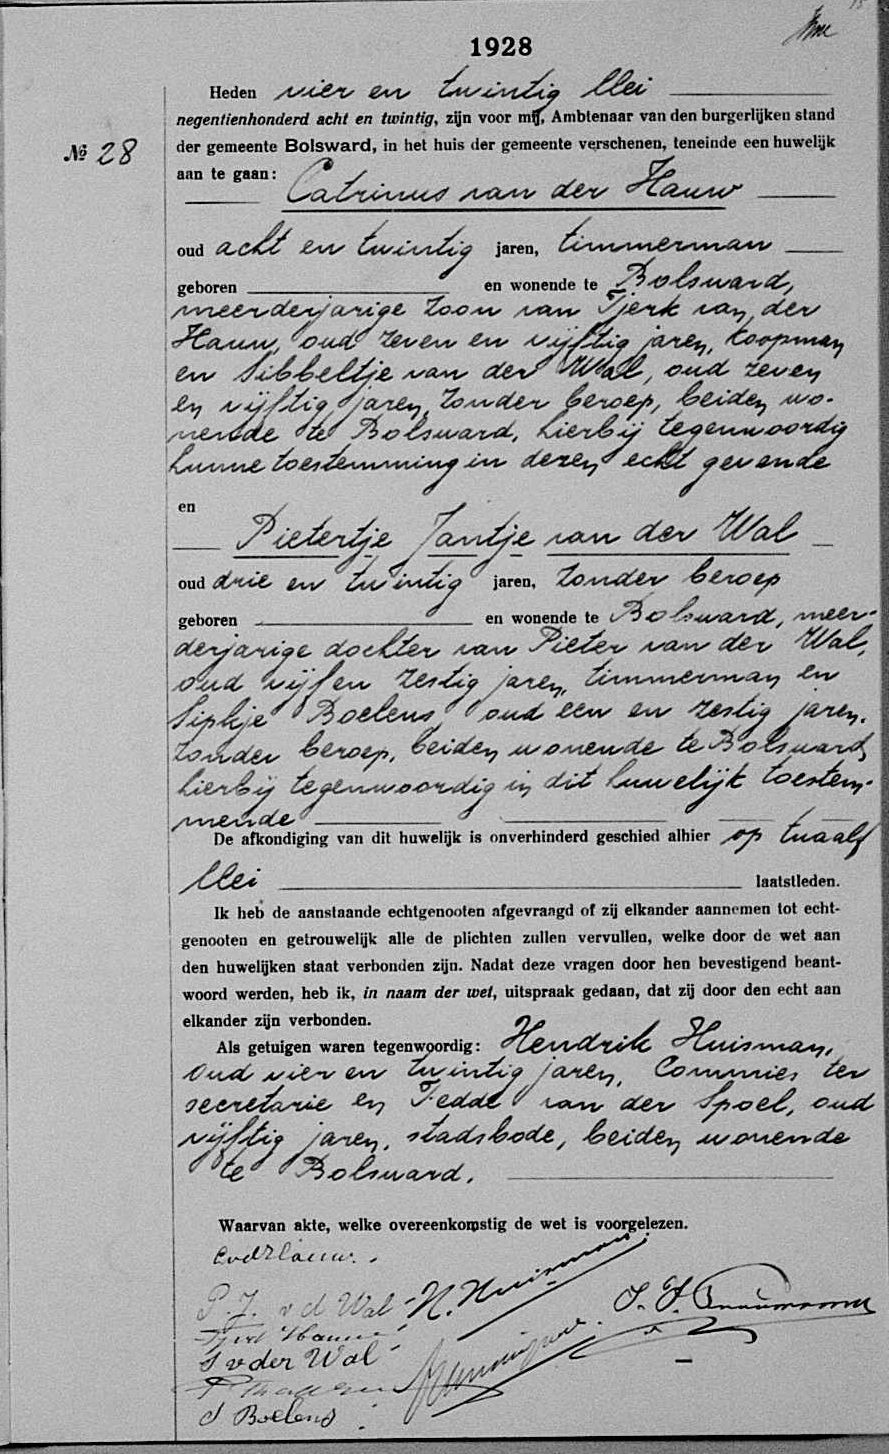 1928
Heden vier en twintig Mei
negentienhonderd acht en twintig, zijn voor mij, Ambtenaar van den burgerlijken stand
№ 28
der gemeente Bolsward, in het huis der gemeente verschenen, teneinde een huwelijk
aan te gaan:
Catrinus van der Hauw
oud acht en twintig jaren, timmerman
geboren en wonende te Bolsward,
meerderjarige zoon van Tjerk van der
Hauw, oud zeven en vijftig jaren, koopman
en Sibbeltje van der Wal, oud zeven
en vijftig jaren, zonder beroep, beiden wo-
nende te Bolsward, hierbij tegenwoordig
hunne toestemming in dezen echt gevende
en
Pietertje Jantje van der Wal
oud drie en twintig jaren, zonder beroep
geboren en wonende te Bolsward, meer-
derjarige dochter van Pieter van der Wal,
oud vijf en zestig jaren, timmerman en
Sipkje Boelens, oud een en zestig jaren.
zonder beroep, beiden wonende te Bolsward,
hierbij tegenwoordig in dit huwelijk toestem-
mende
De afkondiging van dit huwelijk is onverhinderd geschied alhier op twaalf
Mei laatstleden.
Ik heb de aanstaande echtgenooten afgevraagd of zij elkander aannemen tot echt-
genooten en getrouwelijk alle de plichten zullen vervullen, welke door de wet aan
den huwelijken staat verbonden zijn. Nadat deze vragen door hen bevestigend beant-
woord werden, heb ik, in naam der wet, uitspraak gedaan, dat zij door den echt aan
elkander zijn verbonden.
Als getuigen waren tegenwoordig: Hendrik Huisman,
oud vier en twintig jaren, Commies ter
secretarie en Fedde van der Spoel, oud
vijftig jaren, stadsbode, beiden wonende
te Bolsward.
Waarvan akte, welke overeenkomstig de wet is voorgelezen.
CvdHauw.
P. J. v d Wal
H. Huisman
S v der Wal
S Boelens